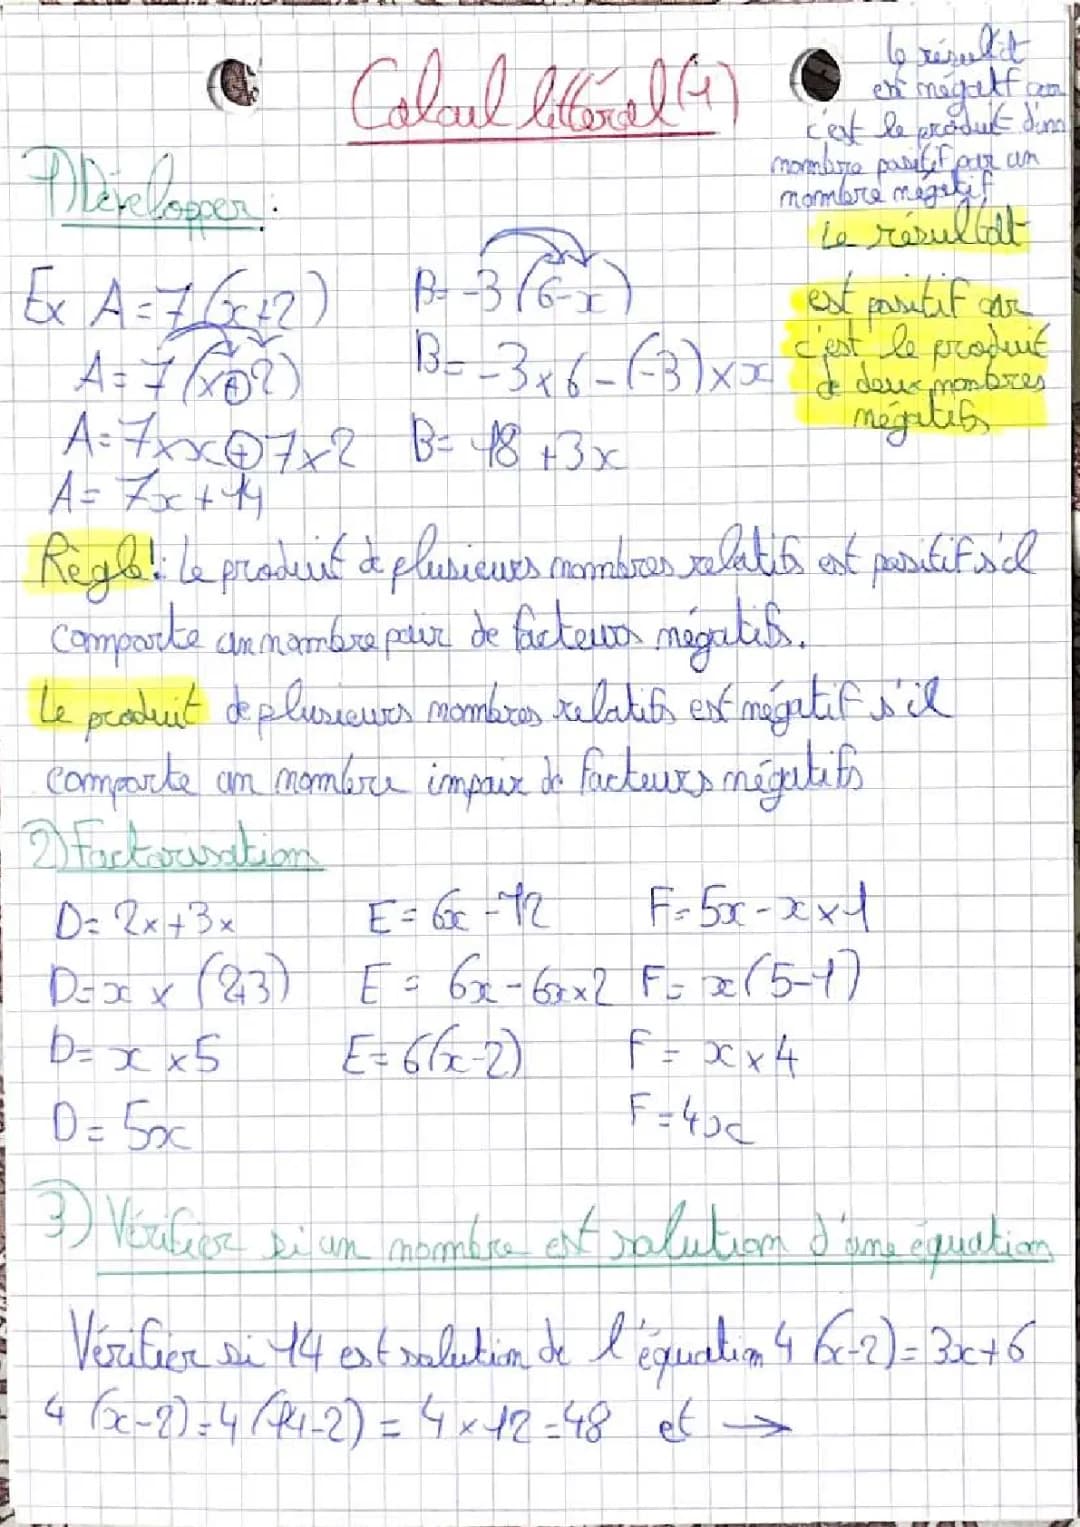 Calcul littéral (4)
le résultat
est négatif car
c'est le produit d'un
nombre positif par un
nombre négatif
Le résultat
est positif car
c'est le produit
de deux nombres
négatifs
1) Développer :
Ex A = 7(x+2)
A = 7(x+2)
A = 7×x+7×2
A = 7x + 14
B = -3(6-x)
B = -3×6-(-3)×x
B = -18 +3x
Règle! : Le produit de plusieurs nombres relatifs est positif s'il
comporte un nombre pair de facteurs négatifs.
Le produit de plusieurs nombres relatifs est négatif s'il
comporte un nombre impair de facteurs négatifs
2) Factorisation
D = 2x+3x
D = x × (2+3)
D = x ×5
D = 5x
E = 6x -12
E = 6x - 6×2
E = 6(x-2)
F = 5x - x×1
F = x(5-1)
F = x×4
F = 4x
3) Vérifier si un nombre est solution d'une équation
Vérifier si 14 est solution de l'équation 4(x-2) = 3x+6
4(x-2) = 4(14-2) = 4×12 = 48 et →